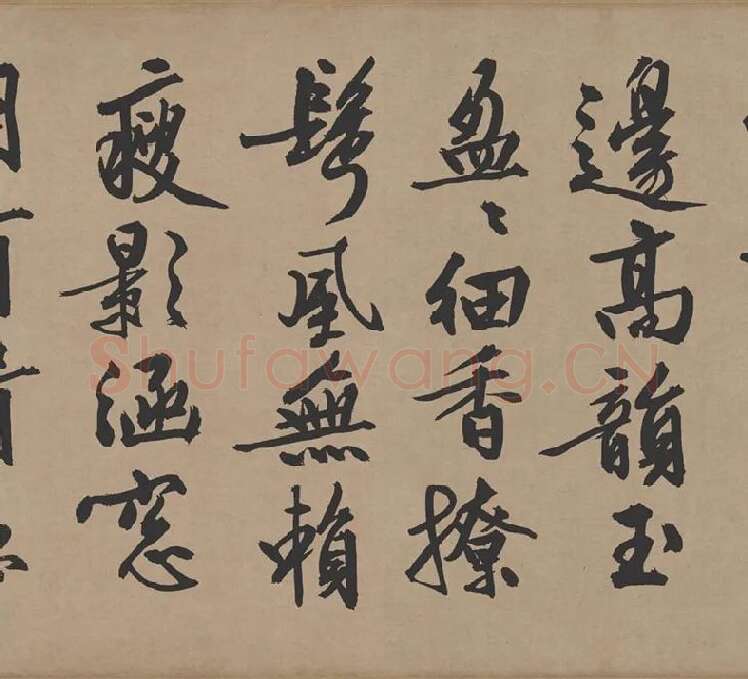 邊高韻玉
盈〻細香撩
鬓風無賴
瘦影涵窓
Shufawang.CN